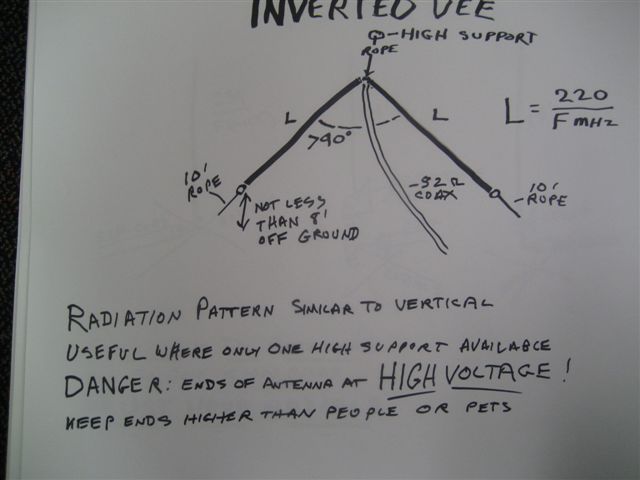 INVERTED VEE
HIGH SUPPORT
ROPE
L
L
L = 220
F MHZ
>90°
10'
ROPE
NOT LESS
THAN 8'
OFF GROUND
52Ω
COAX
10'
ROPE
RADIATION PATTERN SIMILAR TO VERTICAL
USEFUL WHERE ONLY ONE HIGH SUPPORT AVAILABLE
DANGER: ENDS OF ANTENNA AT HIGH VOLTAGE!
KEEP ENDS HIGHER THAN PEOPLE OR PETS